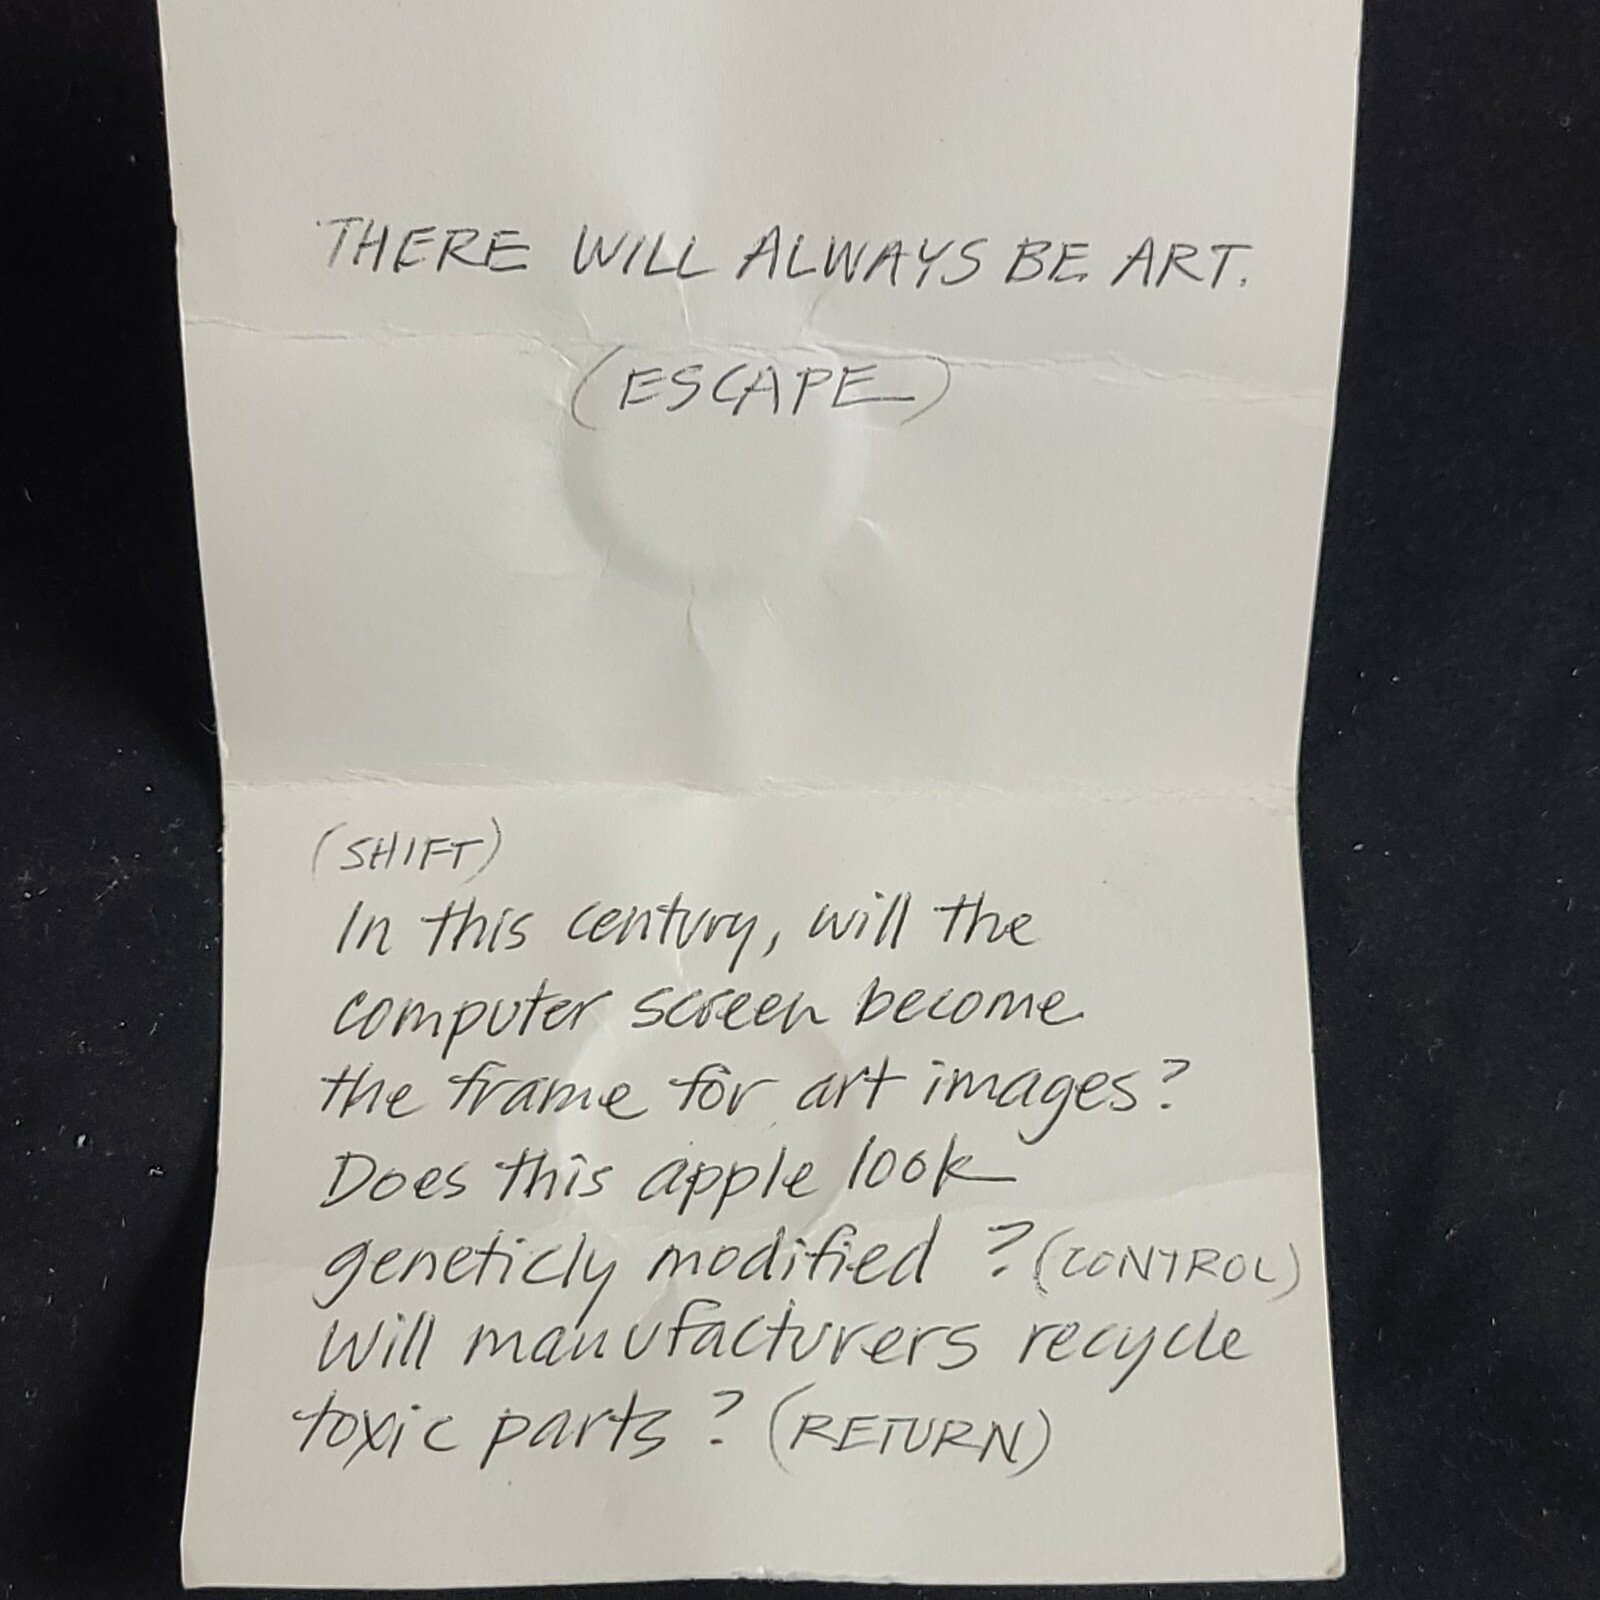 THERE WILL ALWAYS BE ART.
(ESCAPE)
(SHIFT)
In this century, will the
computer screen become
the frame for art images?
Does this apple look
geneticly modified? (CONTROL)
Will manufacturers recycle
toxic parts? (RETURN)